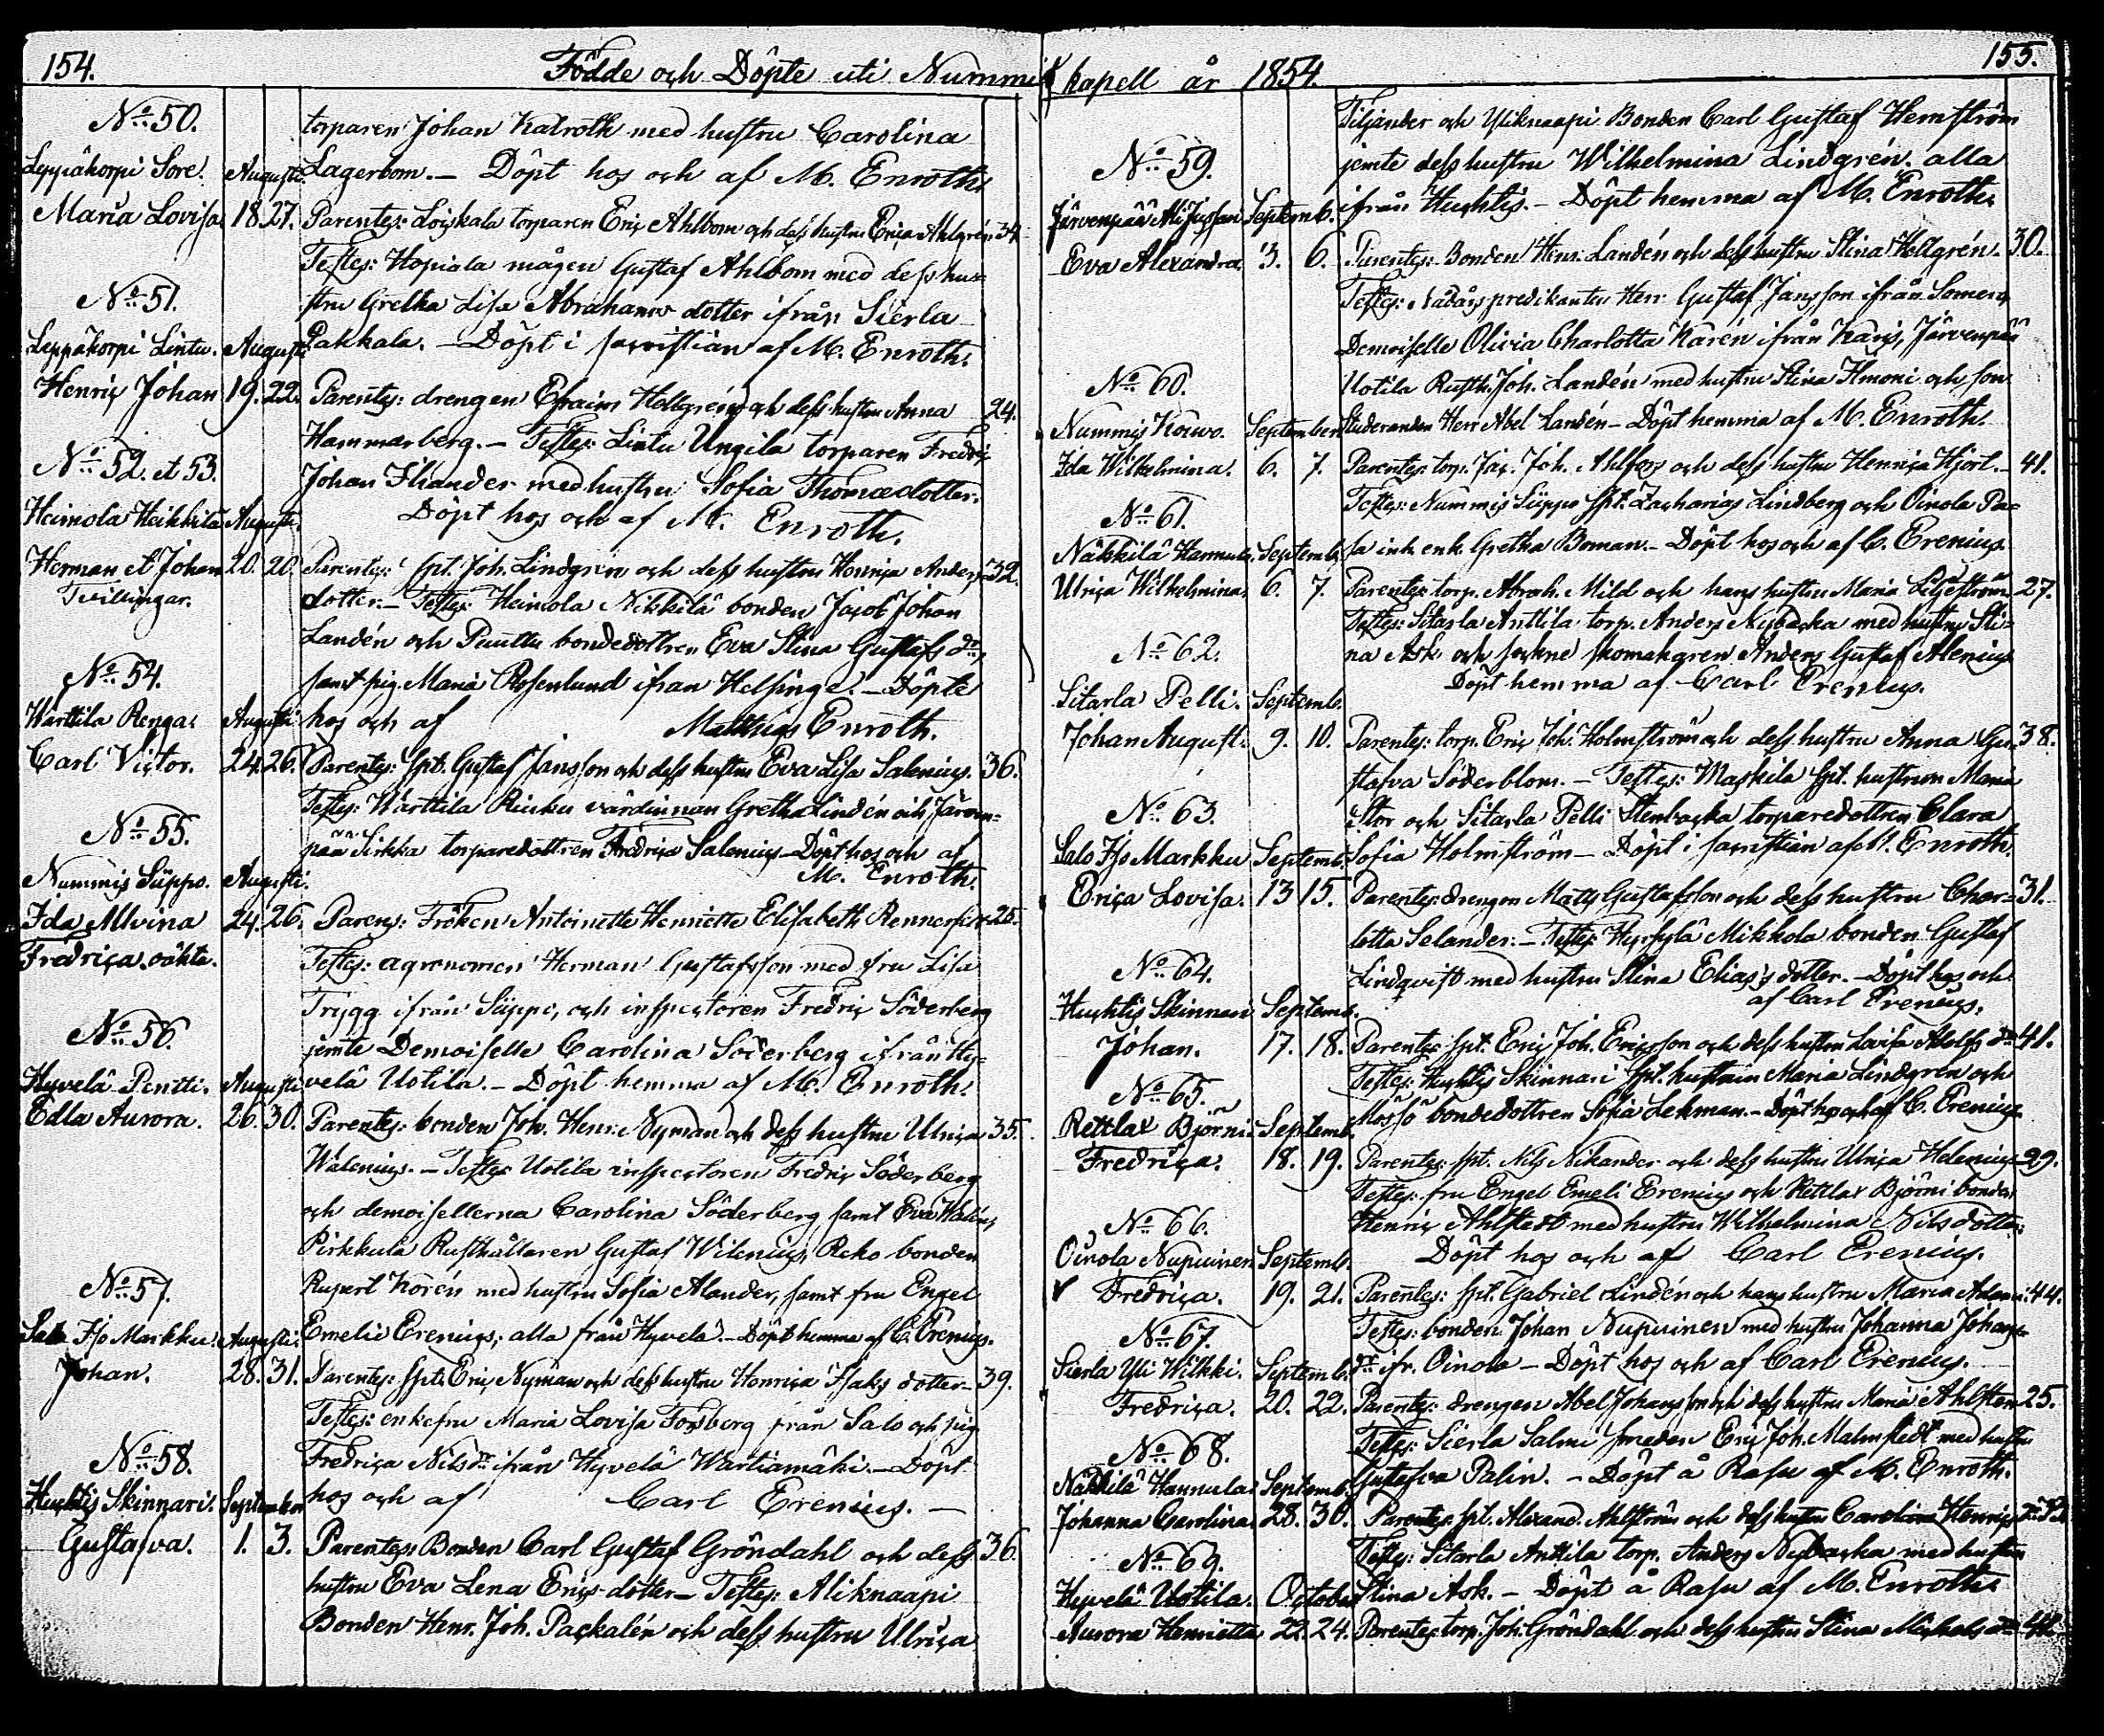 154.
Födde och Döpte uti Nummis kapell år 1854.
155.
No. 50.
torparen Johan Kalroth med hustru Carolina
Leppäkorpi Sore. Augusti. Lagerbom. – Döpt hos och af M. Enroth.
Maria Lovisa 18. 27. Parentes: Loiskala torparen Eric Ahlbom och dess hustru Erica Ahlgrén 34.
Testes: Hopiala mågen Gustaf Ahlbom med dess hu=
No. 51.
stru Gretha Lisa Abrahams dotter ifrån Sierla
Leppäkorpi Lintu. Augusti Pakkala. – Döpt i sacristian af M. Enroth.
Henric Johan 19. 22. Parentes: drengen Efraim Hellgrén och dess hustru Anna 24.
Hammarberg. – Testes: Lintu Ungila torparen Fredric
No. 52. et 53.
Johan Iliander med hustru Sofia Thomædotter.
Heimola Heikkilä Augusti. Döpt hos och af M. Enroth.
Herman et Johan 20. 20. Parentes: Spt. Joh. Lindgrén och dess hustru Henrica Anders 39.
Tvillingar.
dotter. – Testes: Heimola Nikkilä bonden Jacob Johan
Landén och Puuttu bondedottren Eva Stina Gustafs dr,
No. 54.
samt pig. Maria Rosenlund ifrån Helsinge. – Döpte
Warttila Renga. Augusti hos och af Matthias Enroth.
Carl Victor. 24. 26. Parentes: Spt. Gustaf Jansson och dess hustru Eva Lisa Salenius. 36.
Testes: Warttila Rinku värdinnan Gretha Lindén och Järven=
No. 55.
pää Sirkka torparedottren Fredrica Salenius – Döpt hos och af
Nummis Siippo. Augusti. M. Enroth.
Ida Alvina 24. 26. Parens: Fröken Antoinette Henriette Elisabeth Rennerfelt 25.
Fredrica. oäkta.
Testes: agronomen Herman Gustafsson med fru Lisa
Trygg ifrån Siippo, och inspectoren Fredric Söderberg
No. 56.
jemte Demoiselle Carolina Söderberg ifrån Hy=
Hyvelä Pentti. Augusti. velä Uotila. – Döpt hemma af M. Enroth.
Edla Aurora. 26. 30. Parentes: bonden Joh. Henr. Nyman och dess hustru Ulrica 35.
Walenius. – Testes: Uotila inspectoren Fredric Söderberg
och demoisellerna Carolina Söderberg samt Eva
Pirkkula Rusthållaren Gustaf Wilenius, Reko bonden
No. 57.
Rupert Korén med hustru Sofia Alander, samt fru Engel
Salo Iso Markku. Augusti. Emelie Erenius; alla från Hyvelä. – Döpt hemma af C. Erenius.
Johan. 28. 31. Parentes: Spt. Eric Nyman och dess hustru Henrica Isaks dotter. 39.
Testes: enkefru Maria Lovisa Forsberg från Salo och pig.
No. 58.
Fredrica Nilsdr ifrån Hyvelä Wartiamäki. – Döpt
Huhtis Skinnari. September hos och af Carl Erenius. –
Gustafva. 1. 3. Parentes: Bonden Carl Gustaf Gröndahl och dess 36.
hustru Eva Lena Erics dotter – Testes: Aliknaapi
Bonden Henr. Joh. Packalén och dess hustru Ulrica
Tiljander och Yliknaapi Bonden Carl Gustaf Hernström
No. 59.
jemte dess hustru Wilhelmina Lindgrén. alla
Järvenpää Septemb. ifrån Huhtis. – Döpt hemma af M. Enroth.
Eva Alexandra 3. 6. Parentes: Bonden Henr. Landén och dess hustru Stina Hellgrén. 30.
Testes: Nådårs predikanten Herr Gustaf Jansson ifrån Somero,
Demoiselle Olivia Charlotta Karén ifrån Karis, Järvenpää
No. 60.
Uotila Rusth. Joh. Landén med hustru Stina Ilmoni och son
Nummis Kouvo. September Studeranden Herr Abel Landén – Döpt hemma af M. Enroth.
Ida Wilhelmina. 6. 7. Parentes: torp. Jac. Joh. Ahlfors och dess hustru Henrica Hjort. 41.
No. 61.
Testes: Nummis Siippo Spt. Zacharias Lindberg och Oinola Pa=
Näkkilä Hannula. Septemb. sa inh. enk. Gretha Boman. – Döpt hos och af C. Erenius.
Ulrica Wilhelmina 6. 7. Parentes: torp. Abrah. Mild och hans hustru Maria Liljeström 27.
Testes: Sitarla Anttila torp. Anders Nybacka med hustru Sti=
No. 62.
na Ask och sockne skomakaren Anders Gustaf Alenius
Sitarla Pelli. Septemb. Döpt hemma af Carl Erenius.
Johan August. 9. 10. Parentes: torp. Eric Joh. Holmström och dess hustru Anna Gu= 38.
stafva Söderblom. – Testes: Maskila Spt. hustrun Maria
No. 63.
Stor och Sitarla Pelli Stenbacka torparedottren Clara
Salo Iso Markku Septemb. Sofia Holmström – Döpt i sacristian af M. Enroth.
Erica Lovisa. 13 15. Parentes: drengen Matts Gustafsson och dess hustru Char= 31.
lotta Selander. – Testes: Hyrsylä Mikkola bonden Gustaf
No. 64.
Lindqvist med hustru Stina Elias's dotter. – Döpt hos och
Huhtis Skinnari Septemb. af Carl Erenius.
Johan. 17. 18. Parentes: Spt. Eric Joh. Ericsson och dess hustru Lovisa Adolfs dr 41.
Testes: Huhtis Skinnari Spt. hustrun Maria Lindgrén och
No. 65.
Mossjö bondedottren Sofia Lehman. – Döpt hos och af C. Erenius
Rettlax Björni Septemb.
Fredrica. 18. 19. Parentes: Spt. Nils Nikander och dess hustru Ulrica Helenius 29.
Testes: fru Engel Emeli Erenius och Rettlax Björni bonden
No. 66.
Henric Ahlstedt med hustru Wilhelmina Nilsdotter.
Oinola Nupuinen Septemb. Döpt hos och af Carl Erenius.
Fredrica. 19. 21. Parentes: Spt. Gabriel Lindén och hans hustru Maria 44.
No. 67.
Testes: bonden Johan Nupuinen med hustru Johanna Johans
Sierla Yli Wilkki. Septemb. dr ifr. Oinola – Döpt hos och af Carl Erenius.
Fredrica. 20. 22. Parentes: drengen Abel Johansson och dess hustru Maria Ahlsten 25.
No. 68.
Testes: Sierla Salmi smeden Eric Joh. Malmstedt med hustru
Näkkilä Hannula Septemb. Gustafva Palin. – Döpt å Rasu af M. Enroth.
Johanna Carolina 28. 30. Parentes: Spt. Alexand. Ahlström och dess hustru Carolina Henrics dr 32.
No. 69.
Testes: Sitarla Anttila torp. Anders Nybacka med hustru
Hyvelä Uotila. October Stina Ask. – Döpt å Rasu af M. Enroth.
Aurora Henrietta 22. 24. Parentes: torp. Joh. Gröndahl och dess hustru Stina Michels dr